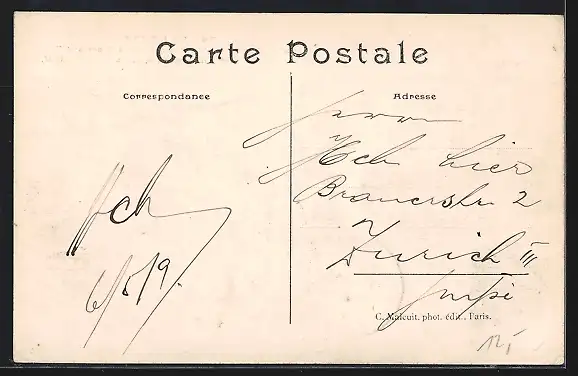 Carte Postale
Correspondance
Adresse
Herrn
Hch
Brauerstr. 2
Zürich III
Hch
6/5/9.
C. Malcuit, phot. édit., Paris.